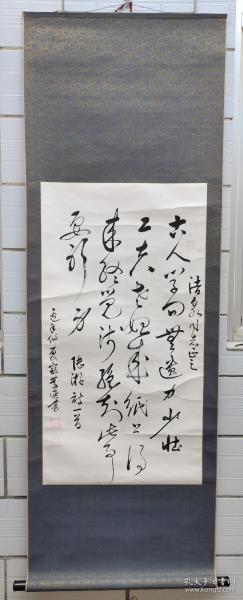 浩泉同志正之
古人学问無遗力少壮
工夫老始成纸上得
来终觉浅绝知此事
要躬行
陆游诗一首
孔夫子旧书网